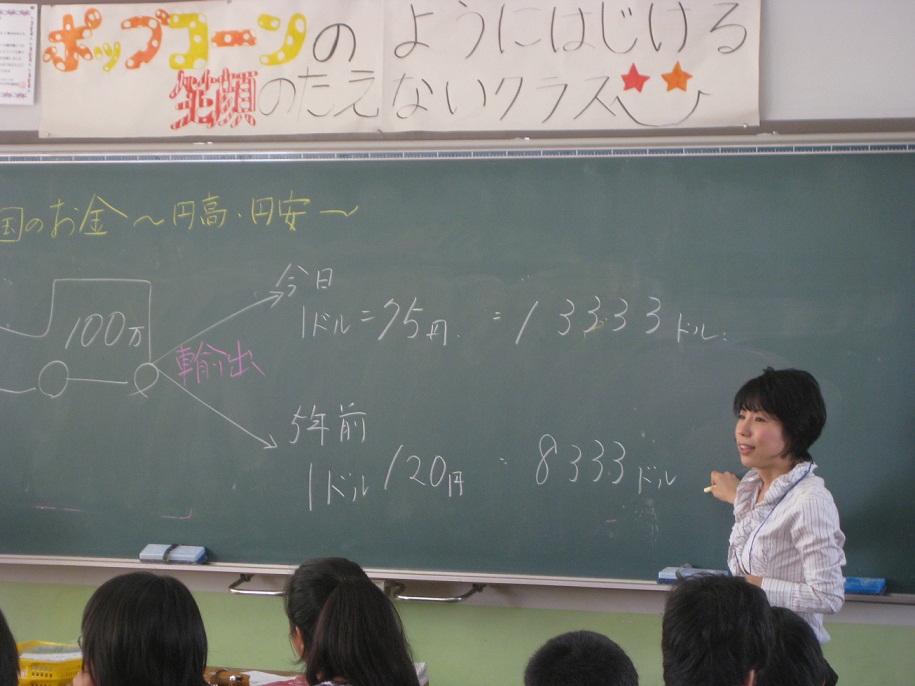 ポップコーンのようにはじける
笑顔のたえないクラス
国のお金～円高・円安～
100万
輸出
今日
1ドル=75円 = 13333ドル
5年前
1ドル120円 = 8333ドル